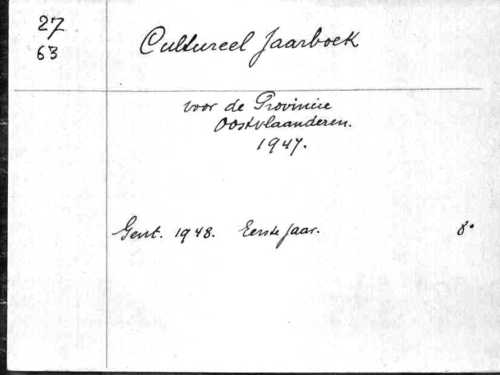 27
63
Cultureel Jaarboek
voor de Provincie
Oostvlaanderen.
1947.
Gent. 1948. Eerste Jaar. 8°